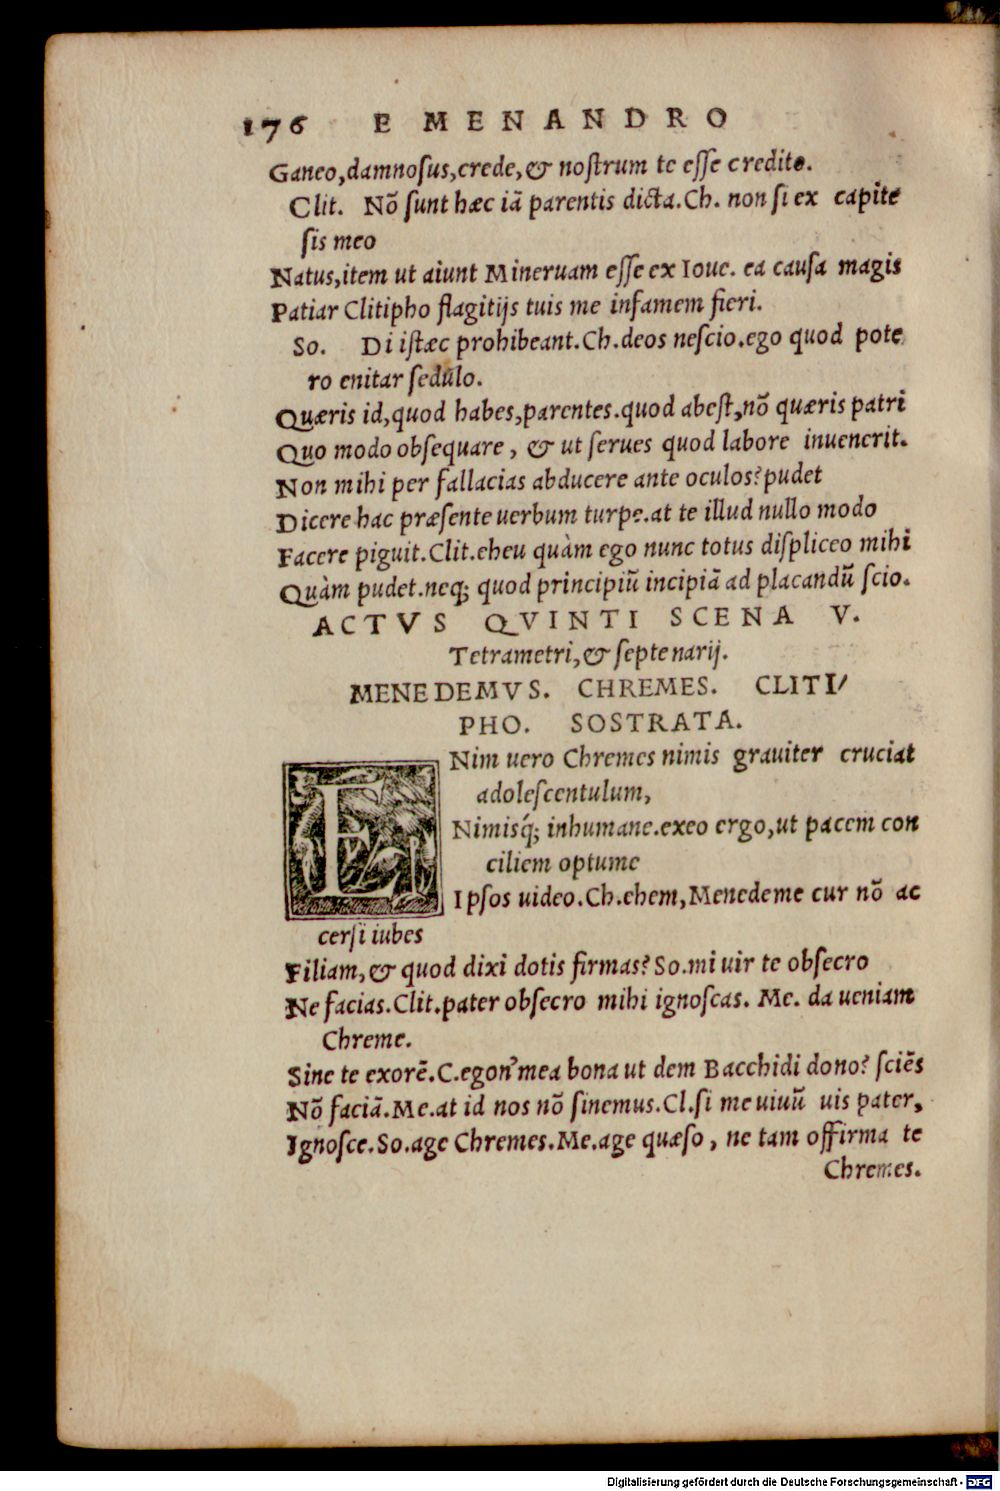 176 E MENANDRO
Ganeo,damnoſus,crede,& noſtrum te eſſe credito.
Clit. Nõ ſunt hæc iã parentis dicta.Ch. non ſi ex capite
ſis meo
Natus,item ut aiunt Mineruam eſſe ex Ioue. ea cauſa magis
Patiar Clitipho flagitijs tuis me infamem fieri.
So. Di iſtæc prohibeant.Ch.deos neſcio.ego quod pote
ro enitar ſedulo.
Quæris id,quod habes,parentes.quod abeſt,nõ quæris patri
Quo modo obſequare, & ut ſerues quod labore inuenerit.
Non mihi per fallacias abducere ante oculos?pudet
Dicere hac præſente uerbum turpe.at te illud nullo modo
Facere piguit.Clit.eheu quàm ego nunc totus diſpliceo mihi
Quàm pudet.neq; quod principiũ incipiã ad placandũ ſcio.
ACTVS QVINTI SCENA V.
Tetrametri,& ſeptenarij.
MENEDEMVS. CHREMES. CLITI/
PHO. SOSTRATA.
ENim uero Chremes nimis grauiter cruciat
adoleſcentulum,
Nimisq́; inhumane.exeo ergo,ut pacem con
ciliem optume
Ipſos uideo.Ch.ehem,Menedeme cur nõ ac
cerſi iubes
Filiam,& quod dixi dotis firmas?So.mi uir te obſecro
Ne facias.Clit.pater obſecro mihi ignoſcas. Me. da ueniam
Chreme.
Sine te exorẽ.C.egon'mea bona ut dem Bacchidi dono? ſciẽs
Nõ faciã.Me.at id nos nõ ſinemus.Cl.ſi me uiuũ uis pater,
Ignoſce.So.age Chremes.Me.age quæſo, ne tam offirma te
Chremes.
Digitalisierung gefördert durch die Deutsche Forschungsgemeinschaft - DFG